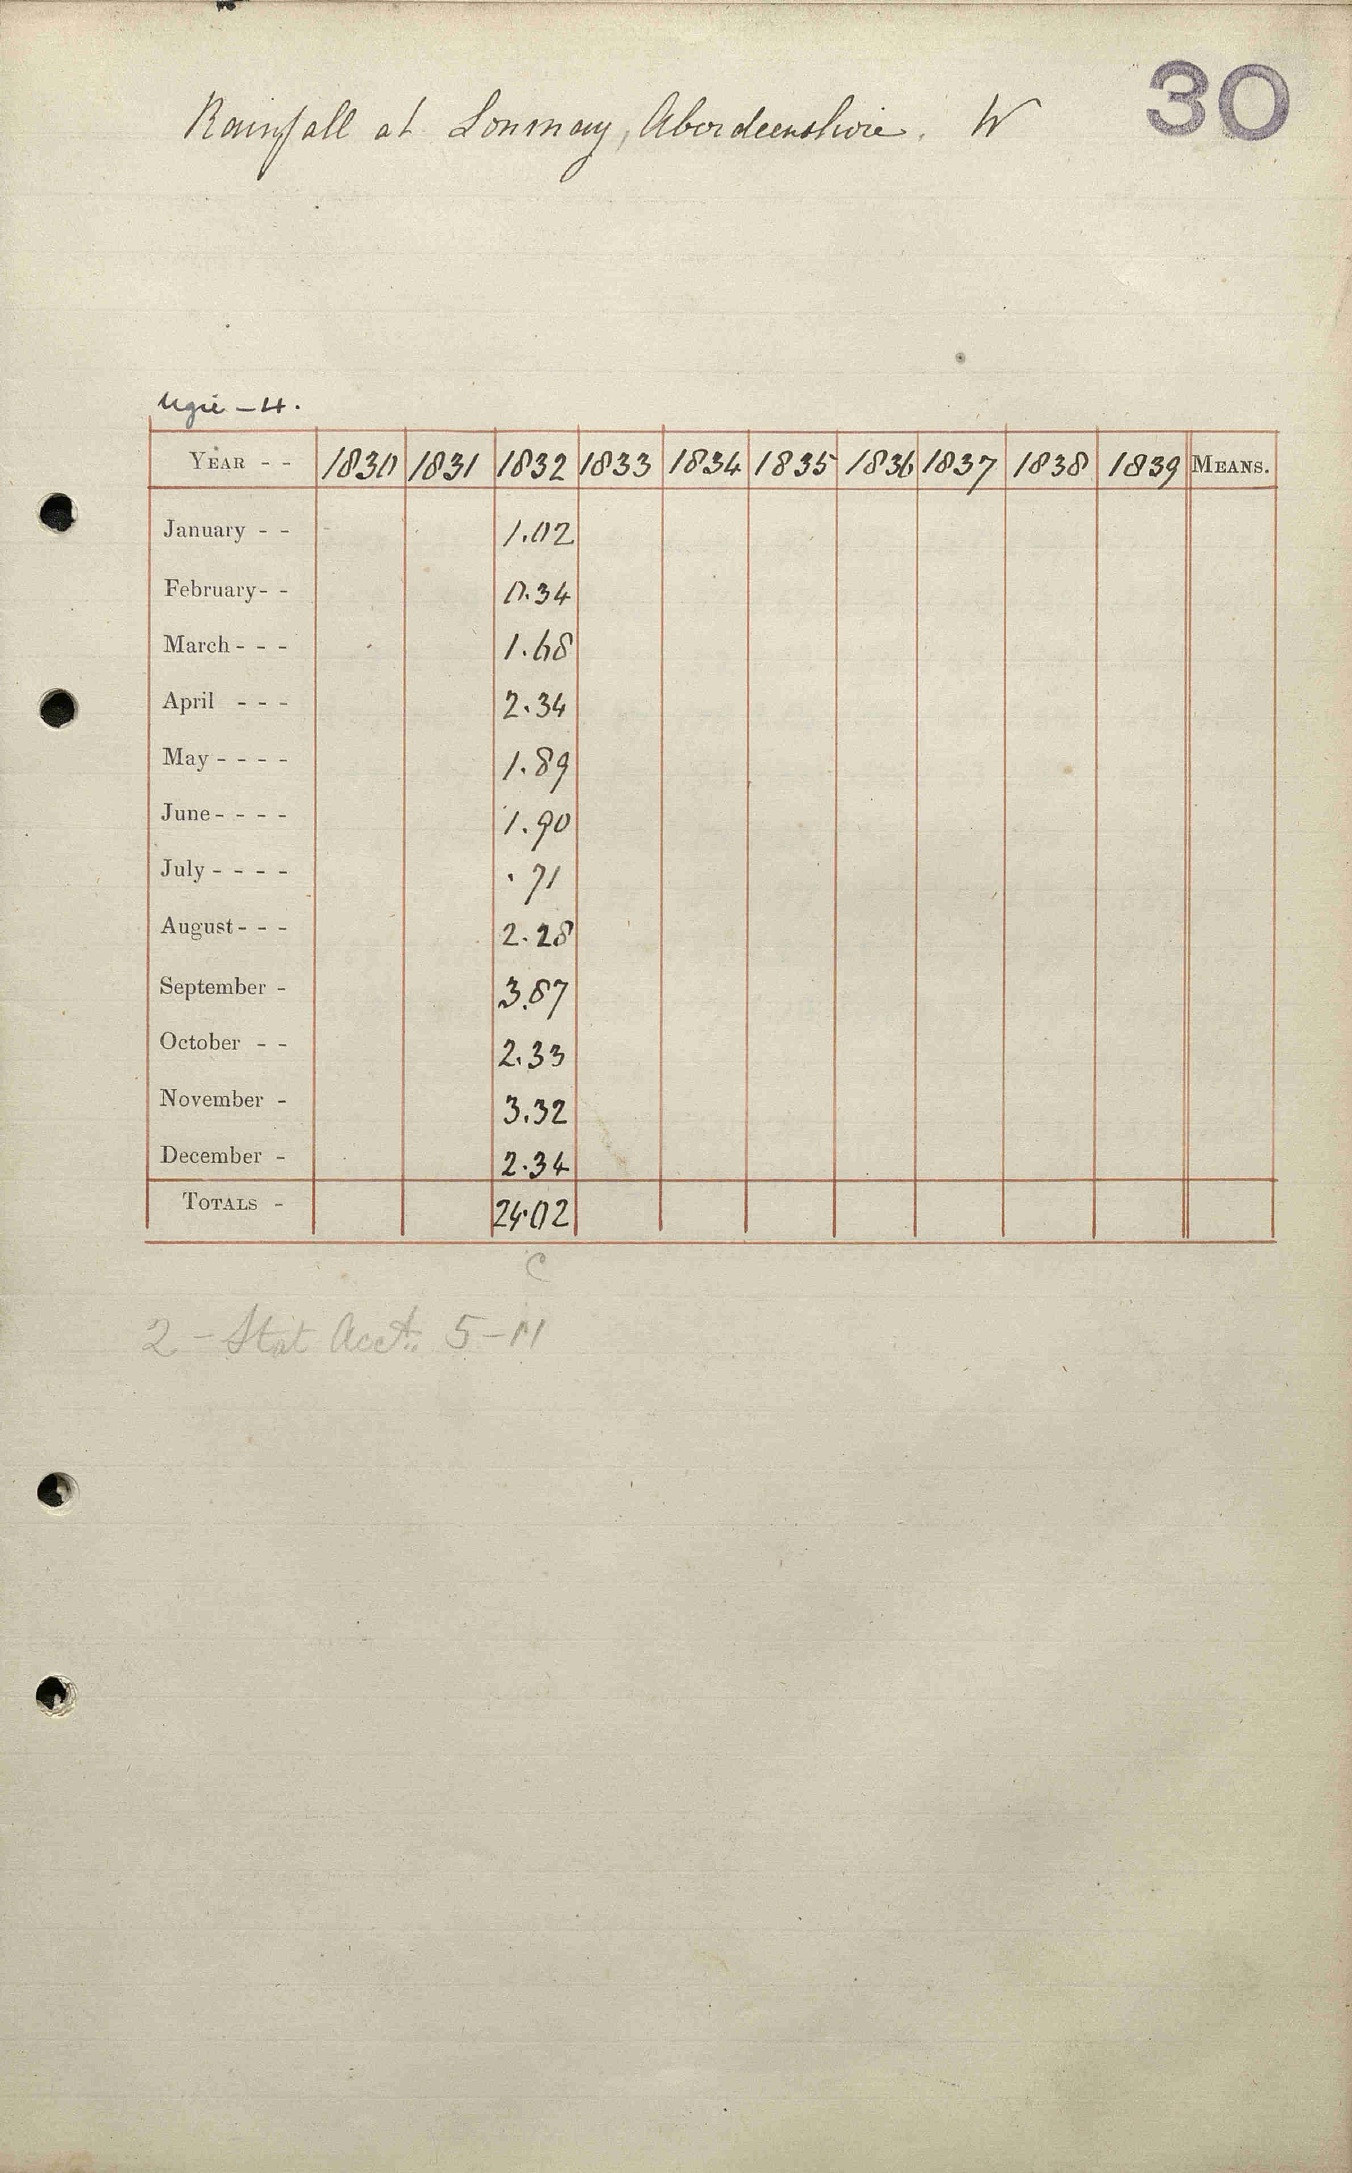 30
Rainfall at Lonmay, Aberdeenshire. W
Ugie - 4.
YEAR - - 1830 1831 1832 1833 1834 1835 1836 1837 1838 1839 MEANS.
January - - 1.02
February - - 0.34
March - - - 1.68
April - - - 2.34
May - - - - 1.89
June - - - - 1.90
July - - - - .71
August - - - 2.28
September - 3.87
October - - 2.33
November - 3.32
December - 2.34
TOTALS - 24.02
C
2 - Stat Acct. 5-